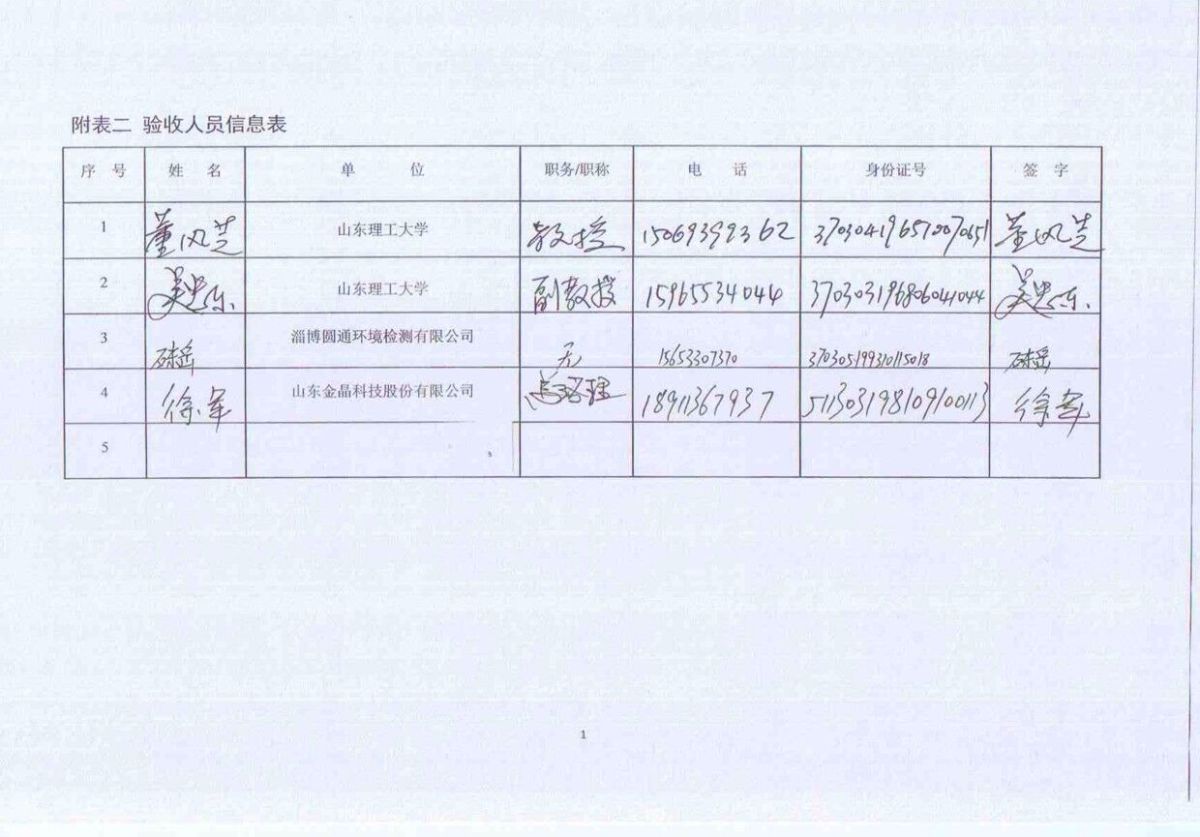 附表二 验收人员信息表
序 号 姓 名 单 位 职务/职称 电 话 身份证号 签 字
1 董风芝 山东理工大学 教授 董风芝
2 山东理工大学 副教授 15965534044 370303196806041044
3 淄博圆通环境检测有限公司 无 15653307370 370305199310115018
4 徐军 山东金晶科技股份有限公司 总经理 18911367937 511303198109100113 徐军
5
1